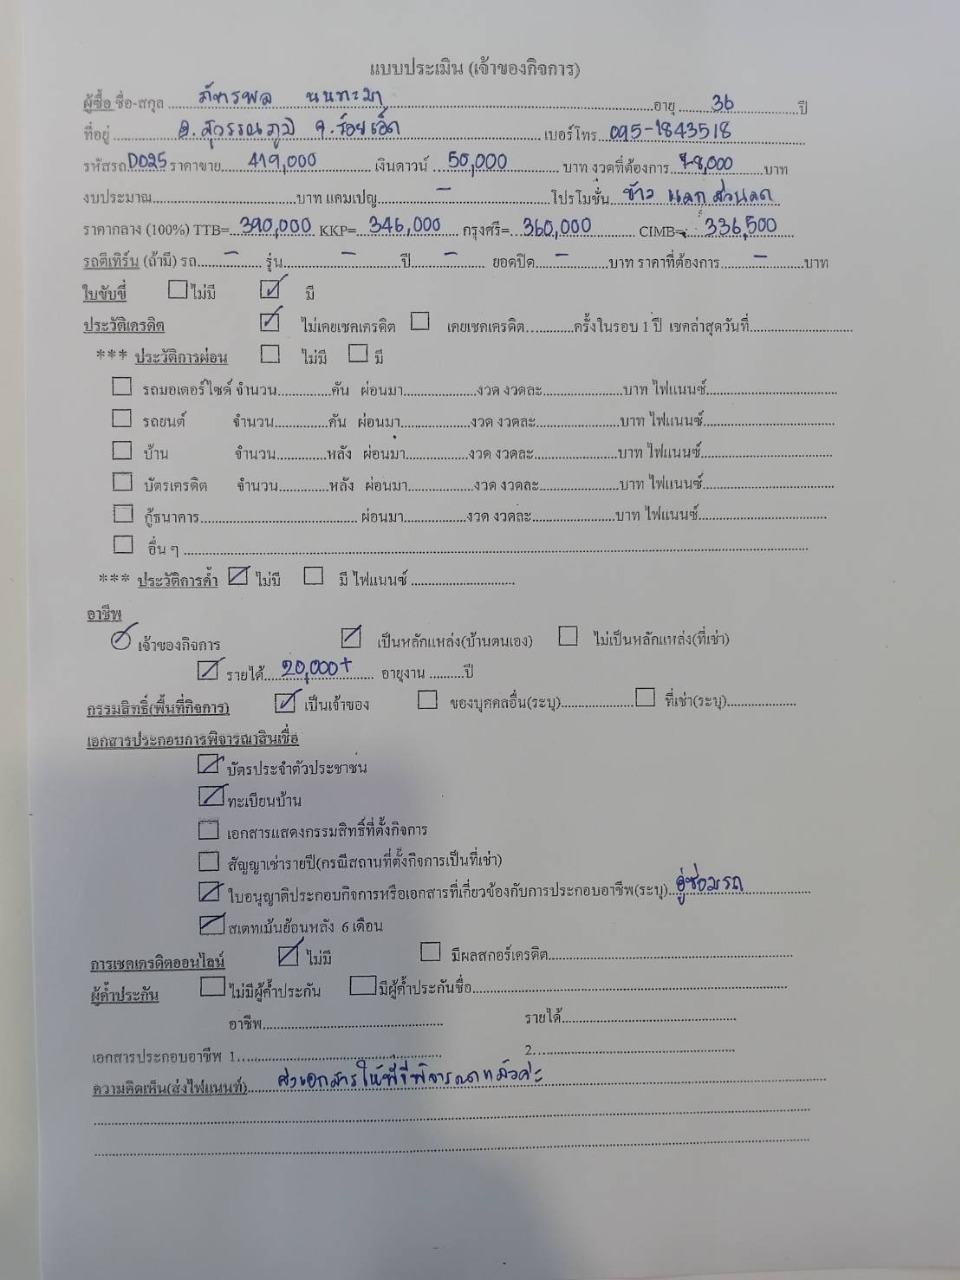 แบบประเมิน (เจ้าของกิจการ)
ผู้ซื้อ ชื่อ-สกุล ภัทรพล นนทะมา อายุ 36 ปี
ที่อยู่ อ.สุวรรณภูมิ จ.ร้อยเอ็ด เบอร์โทร 095-1843518
รหัสรถ DD25 ราคาขาย 419,000 เงินดาวน์ 50,000 บาท งวดที่ต้องการ 7-8,000 บาท
งบประมาณ บาท แคมเปญ - โปรโมชั่น ข้าว แลก ส่วนลด
ราคากลาง (100%) TTB= 390,000 KKP= 346,000 กรุงศรี= 360,000 CIMB= 336,500
รถตีเทิร์น (ถ้ามี) รถ - รุ่น - ปี - ยอดปิด - บาท ราคาที่ต้องการ - บาท
ใบขับขี่ ไม่มี มี
ประวัติเครดิต ไม่เคยเชคเครดิต เคยเชคเครดิต ครั้งในรอบ 1 ปี เชคล่าสุดวันที่
*** ประวัติการผ่อน ไม่มี มี
รถมอเตอร์ไซด์ จำนวน คัน ผ่อนมา งวด งวดละ บาท ไฟแนนซ์
รถยนต์ จำนวน คัน ผ่อนมา งวด งวดละ บาท ไฟแนนซ์
บ้าน จำนวน หลัง ผ่อนมา งวด งวดละ บาท ไฟแนนซ์
บัตรเครดิต จำนวน หลัง ผ่อนมา งวด งวดละ บาท ไฟแนนซ์
กู้ธนาคาร ผ่อนมา งวด งวดละ บาท ไฟแนนซ์
อื่น ๆ
*** ประวัติการค้ำ ไม่มี มี ไฟแนนซ์
อาชีพ
เจ้าของกิจการ เป็นหลักแหล่ง(บ้านตนเอง) ไม่เป็นหลักแหล่ง(ที่เช่า)
รายได้ 20,000+ อายุงาน ปี
กรรมสิทธิ์(พื้นที่กิจการ) เป็นเจ้าของ ของบุคคลอื่น(ระบุ) ที่เช่า(ระบุ)
เอกสารประกอบการพิจารณาสินเชื่อ
บัตรประจำตัวประชาชน
ทะเบียนบ้าน
เอกสารแสดงกรรมสิทธิ์ที่ตั้งกิจการ
สัญญาเช่ารายปี(กรณีสถานที่ตั้งกิจการเป็นที่เช่า)
ใบอนุญาติประกอบกิจการหรือเอกสารที่เกี่ยวข้องกับการประกอบอาชีพ(ระบุ) อู่ซ่อมรถ
สเตทเม้นย้อนหลัง 6 เดือน
การเชคเครดิตออนไลน์ ไม่มี มีผลสกอร์เครดิต
ผู้ค้ำประกัน ไม่มีผู้ค้ำประกัน มีผู้ค้ำประกันชื่อ
อาชีพ รายได้
เอกสารประกอบอาชีพ 1 2
ความคิดเห็น(ส่งไฟแนนท์) ส่งเอกสารให้พี่ที่พิจารณาแล้วค่ะ